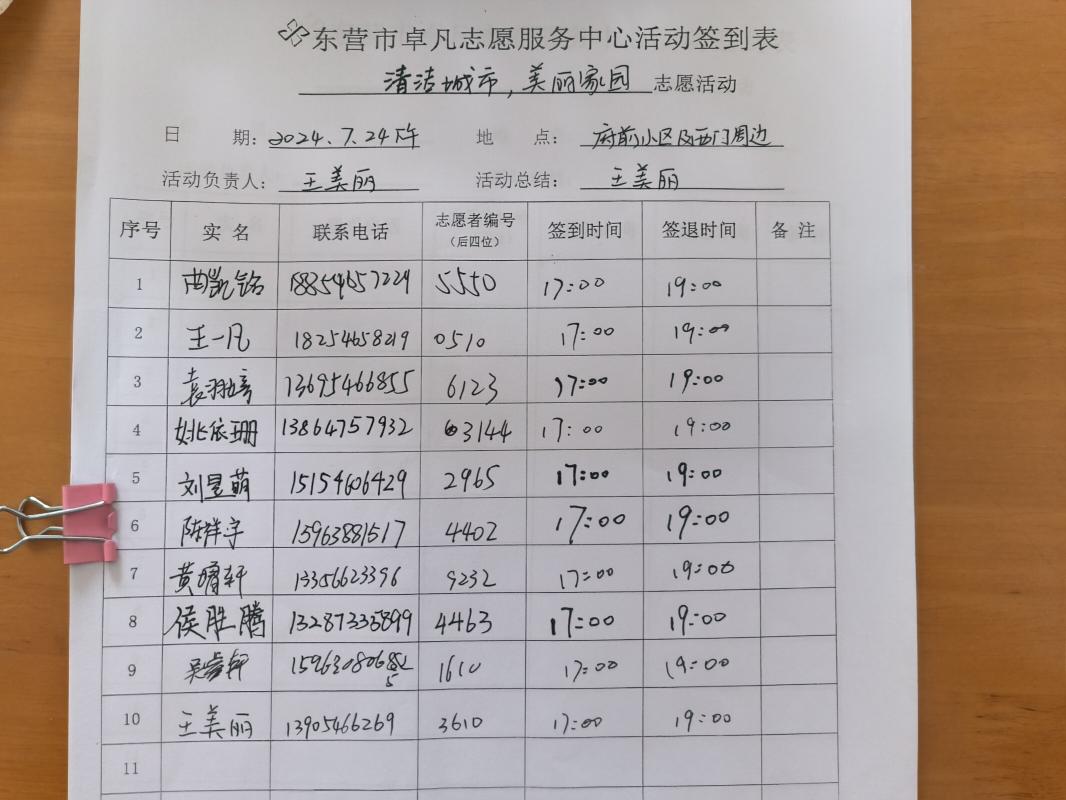 东营市卓凡志愿服务中心活动签到表
清洁城市,美丽家园 志愿活动
日 期: 2024.7.24下午 地 点: 府前小区及西门周边
活动负责人: 王美丽 活动总结: 王美丽
序号 实 名 联系电话 志愿者编号(后四位) 签到时间 签退时间 备 注
1 曲凯铭 18854657229 5550 17:00 19:00
2 王一凡 18254658219 0510 17:00 19:00
3 袁羽 13695466855 6123 17:00 19:00
4 姚依珊 13864757932 3144 17:00 19:00
5 刘昱萌 15154606429 2965 17:00 19:00
6 陈祥宇 15963881517 4402 17:00 19:00
7 黄 轩 13356623396 9232 17:00 19:00
8 侯胜腾 13287335899 4463 17:00 19:00
9 吴睿轩 1610 17:00 19:00
10 王美丽 13905466269 3610 17:00 19:00
11